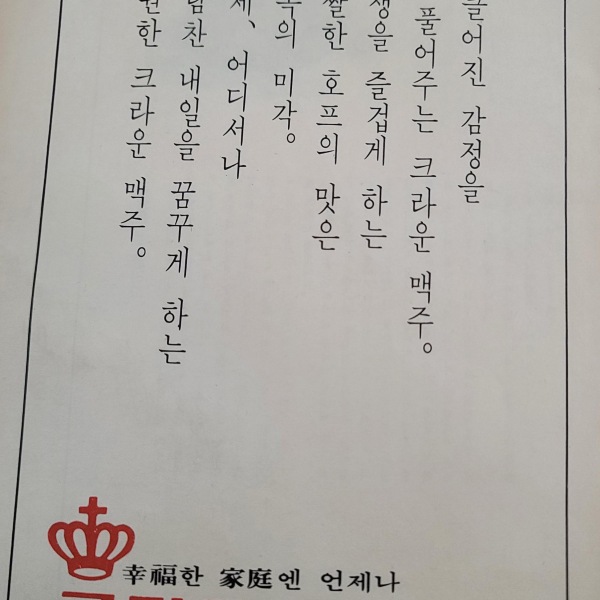 어진 감정을
풀어주는 크라운 맥주。
생을 즐겁게 하는
쌀한 호프의 맛은
복의 미각。
제, 어디서나
람찬 내일을 꿈꾸게 하는
원한 크라운 맥주。
幸福한 家庭엔 언제나